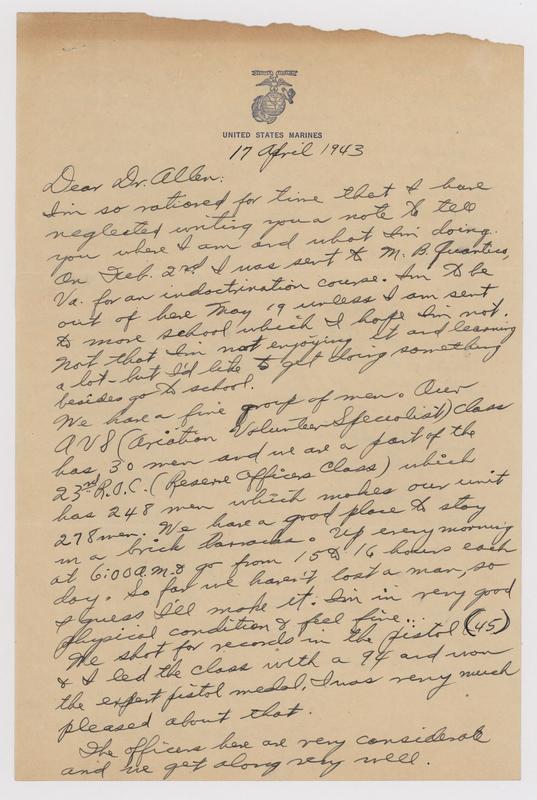 UNITED STATES MARINES
17 April 1943
Dear Dr. Allen:
I'm so rationed for time that I have
neglected writing you a note to tell
you where I am and what I'm doing.
On Feb. 2nd I was sent to M. B. Quantico,
Va. for an indoctrination course. Im to be
out of here May 19 unless I am sent
to more school which I hope I'm not.
Not that I'm not enjoying it and learning
a lot - but I'd like to get doing something
besides go to school.
We have a fine group of men. Our
AVS (Aviation Volunteer Specialist) class
has 30 men and we are a part of the
23rd R.O.C. (Reserve Officers Class) which
has 248 men which makes our unit
278 men. We have a good place to stay
in a brick barracks. Up every morning
at 6:00 A.M. & go from 15 to 16 hours each
day. So far we haven't lost a man, so
I guess I'll make it. I'm in very good
physical condition & feel fine...
We shot for records in the pistol (45)
& I led the class with a 94 and won
the expert pistol medal. I was very much
pleased about that.
The officers here are very considerate
and we get along very well.